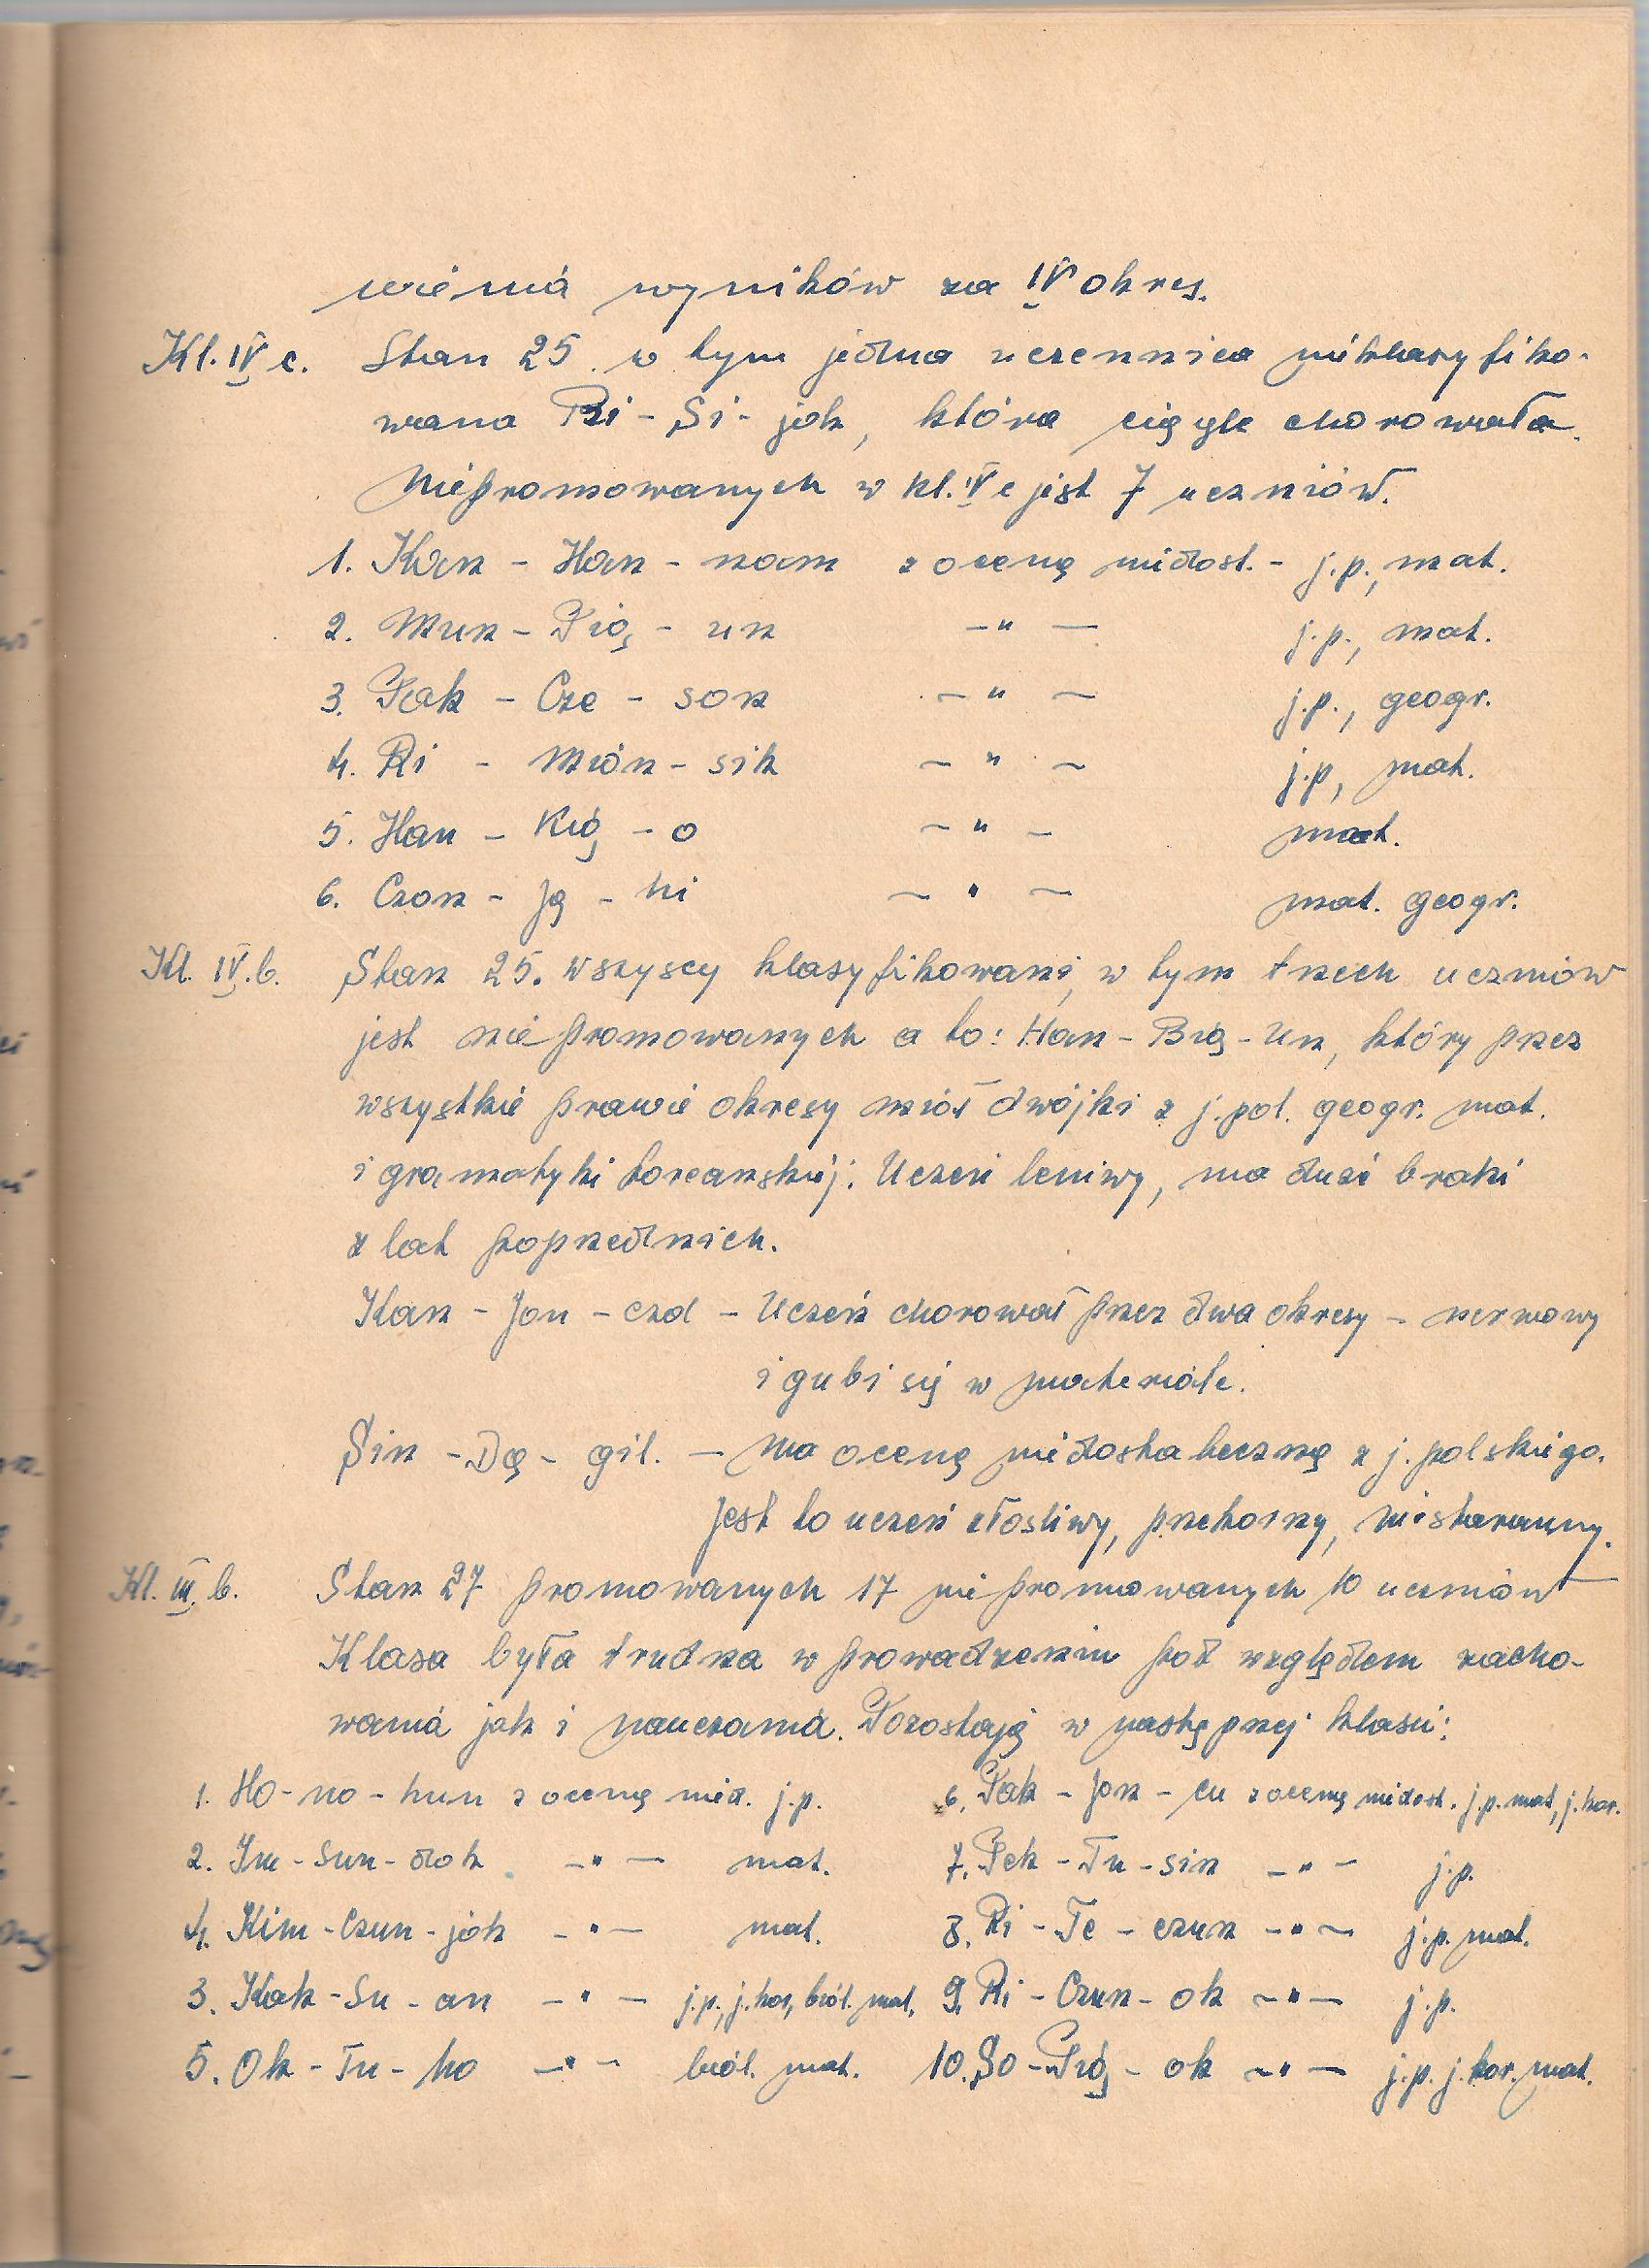 wienia wyników za IV okres.
Kl. IV c. Stan 25 w tym jedna uczennica nieklasyfiko-
wana Ri - Si - jok, która ciągle chorowała.
Niepromowanych w kl. IV c jest 7 uczniów.
1. Kan - Han - nam z oceną niedost. - j.p., mat.
2. Mun - Pią - un — " — j.p., mat.
3. Pak - Cze - son — " — j.p., geogr.
4. Ri - Mión - sik — " — j.p, mat.
5. Han - Kió̧ - o — " — mat.
6. Czon - Ją - hi — " — mat. geogr.
Kl. IV. b. Stan 25. Wszyscy klasyfikowani, w tym trzech uczniów
jest nie promowanych a to: Han - Bią - Un, który przez
wszystkie prawie okresy miał dwójki z j. pol. geogr. mat.
i gramatyki koreańskiej. Uczeń leniwy, ma duże braki
z lat poprzednich.
Kan - Jon - czol - Uczeń chorował przez dwa okresy - nerwowy
i gubi się w materiale.
Sin - Dą - gil. — Ma ocenę niedostateczną z j. polskiego.
Jest to uczeń złośliwy, przekorny, niestaranny.
Kl. III. b. Stan 27 promowanych 17 niepromowanych 10 uczniów
Klasa była trudna w prowadzeniu pod względem zacho-
wania jak i nauczania. Pozostają w następnej klasie:
1. Ho - no - hun z oceną nied. j.p. 6. Pak - Jon - cu z oceną niedost. j.p. mat, j. kor.
2. Im - Sun - dok — " — mat. 7. Pek - Tu - sin — " — j.p.
4. Kim - Czun - jok — " — mat. 8. Ri - Te - czun — " — j.p. mat.
3. Kak - Su - an — " — j.p., j. kor, biol. mat. 9. Ri - Czun - ok — " — j.p.
5. Ok - Tu - ho — " — biol. mat. 10. So - Pió̧ - ok — " — j.p. j. kor. mat.